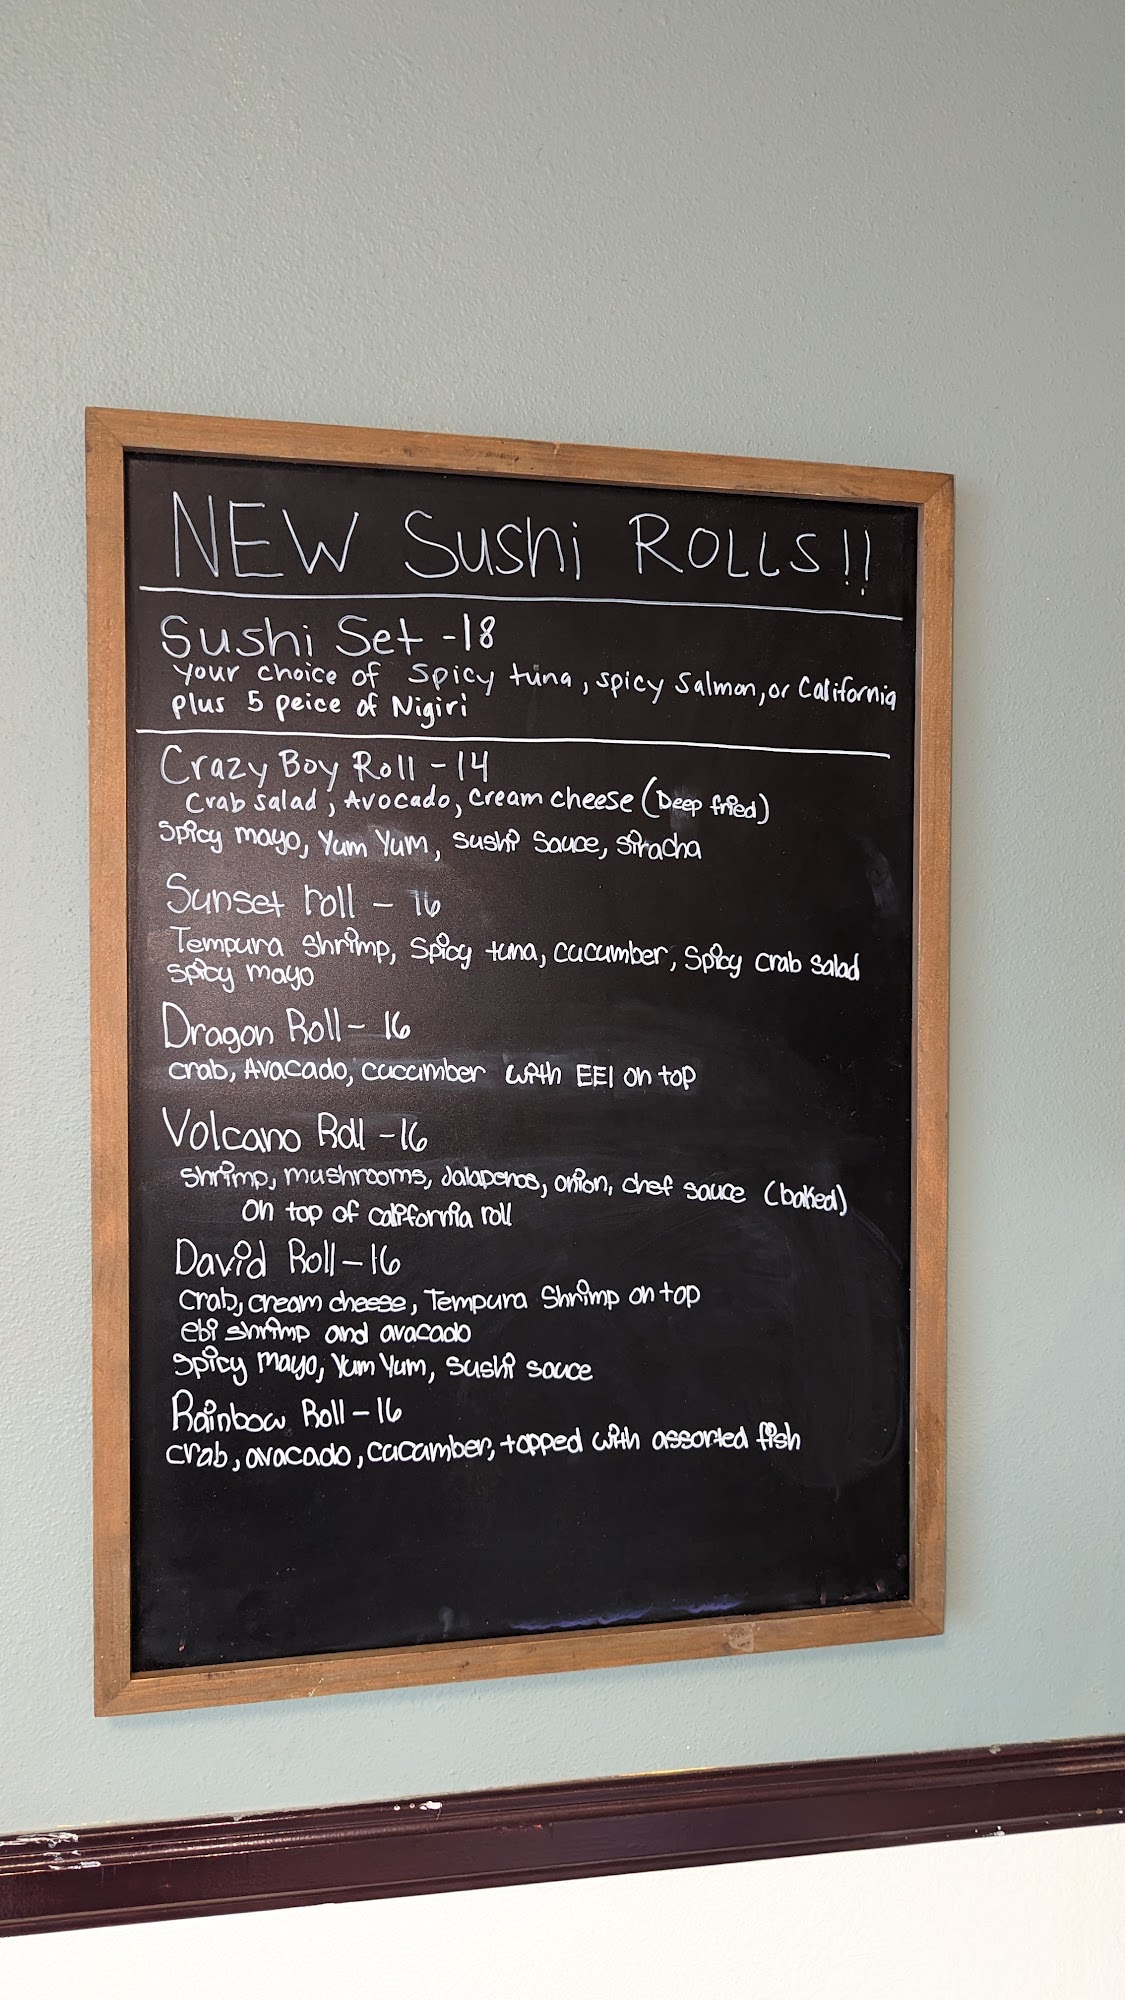 NEW Sushi ROLLS!!
Sushi Set - 18
your choice of spicy tuna, spicy Salmon, or California
plus 5 peice of Nigiri
Crazy Boy Roll - 14
Crab salad, Avocado, Cream cheese (Deep fried)
Spicy mayo, Yum Yum, sushi sauce, siracha
Sunset roll - 16
Tempura shrimp, Spicy tuna, cucumber, Spicy crab salad
spicy mayo
Dragon Roll - 16
crab, Avacado, cucumber with EEl on top
Volcano Roll - 16
shrimp, mushrooms, Jalapenos, onion, chef sauce (baked)
on top of california roll
David Roll - 16
crab, cream cheese, Tempura Shrimp on top
ebi shrimp and avacado
spicy mayo, Yum Yum, sushi sauce
Rainbow Roll - 16
crab, avacado, cucumber, topped with assorted fish